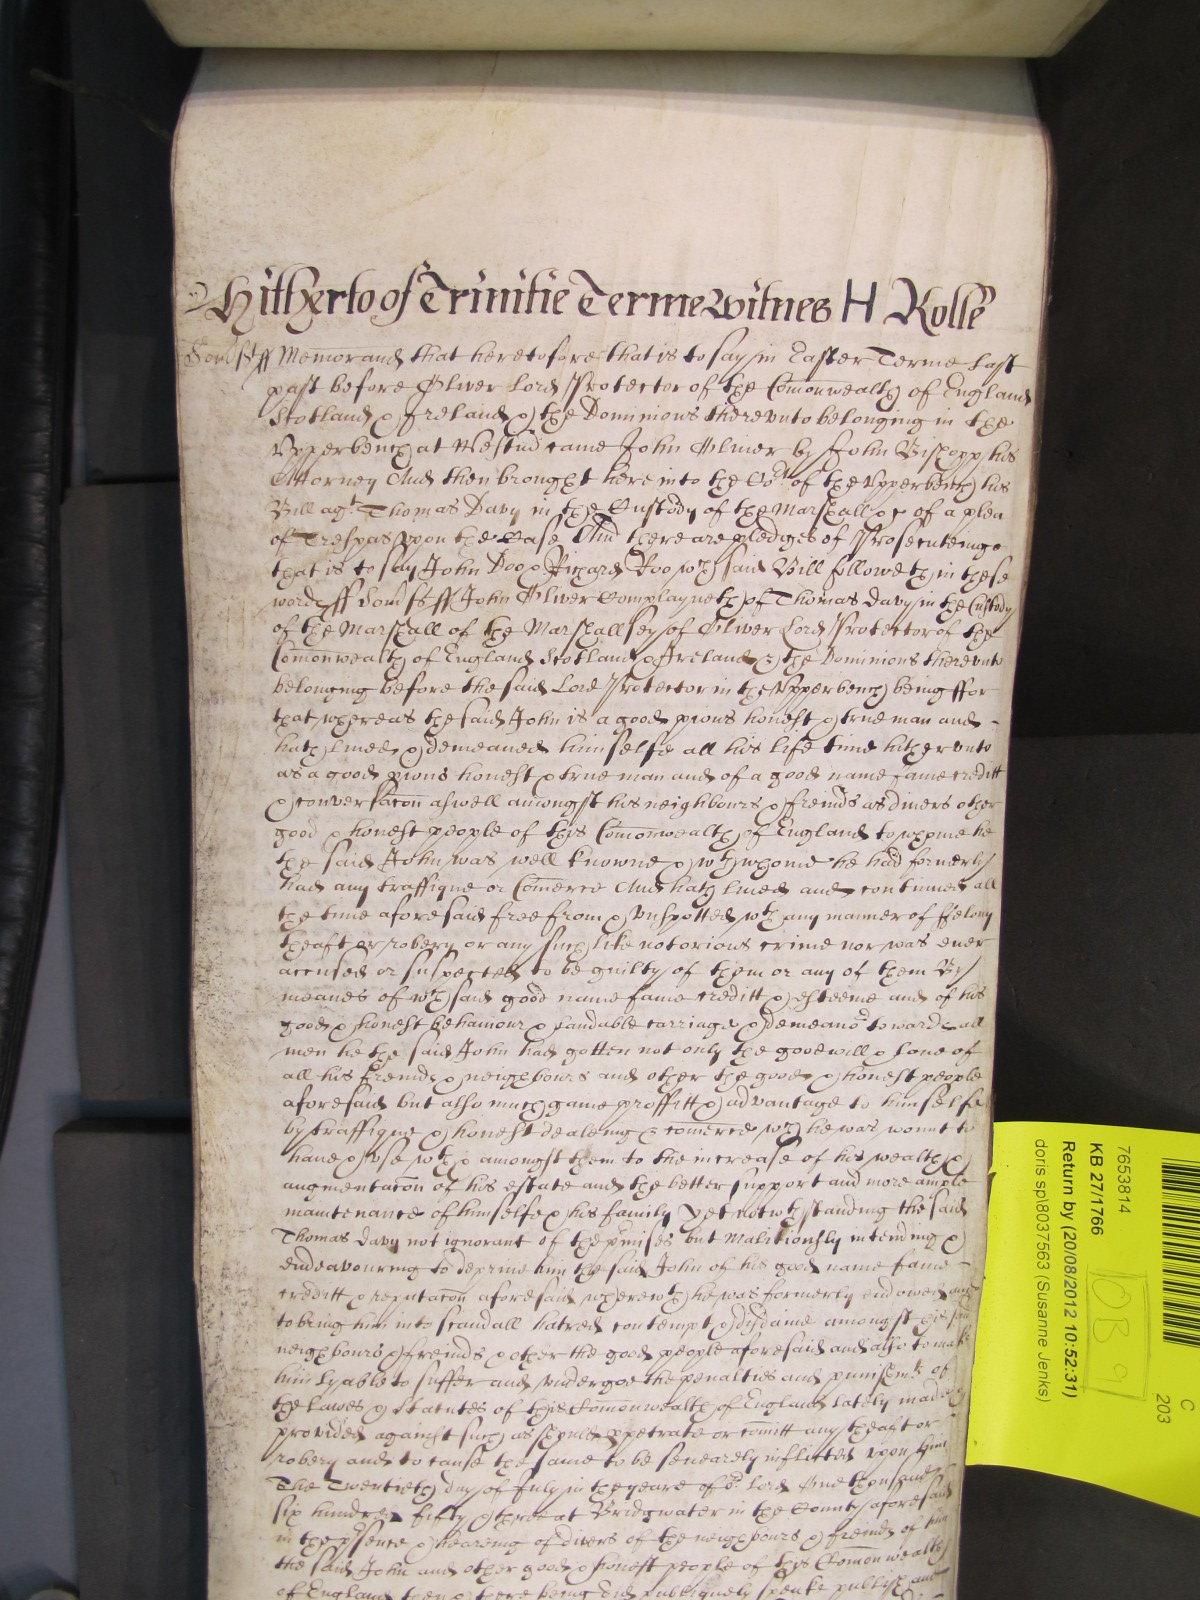 Hitherto of Trinitie Terme Witnes H Rolle
Somst ss Memorand that heretofore that is to say in Easter Terme last
past before Oliver Lord Protector of the Comonwealth of England
Scotland & Ireland & the Dominions therevnto belonging in the
Vpperbench at Westm came John Oliuer by John Bishopp his
Attorney And then brought here into the Co:rt of the Vpperbench his
Bill ag:t Thomas Davy in the Custody of the Marshall &c of a plea
of Trespas vpon the Case And there are pledges of Prosecuteinge
that is to say John Doo & Richard Roo w:ch said Bill followeth in these
words ss Somst ss John Oliver Complayneth of Thomas Davy in the Custody
of the Marshall of the Marshallsey of Oliver Lord Protector of the
Comonwealth of England Scotland & Ireland & the Dominions therevnto
belonging before the said Lord Protector in the Vpperbench being ffor
that whereas the said John is a good pious honest & true man and
hath liued & demeaned himselfe all his life time hithervnto
as a good pious honest & true man and of a good name fame creditt
& conversacon aswell amongst his neighbours & freinds as diuers other
good & honest people of this Comonwealth of England to whome he
the said John was well knowne & w:th whome he had formerly
had any traffique or Comerce And hath liued and continued all
the time aforesaid free from & vnspotted w:th any manner of ffelony
theaft or robery or any such like notorious crime nor was euer
accused or suspected to be guilty of them or any of them By
meanes of w:ch said good name fame creditt & esteeme and of his
good & honest behauiour & laudable carriage & demeano:r towards all
men he the said John had gotten not only the goodwill & loue of
all his freinds & neighbours and other the good & honest people
aforesaid but also much gaine proffitt & advantage to himselfe
by traffique & honest dealeing & comerce w:ch he was wonnt to
haue & vse w:th & amongst them to the increase of his wealth &
augmentacon of his estate and the better support and more ample
maintenance of himselfe & his family Yet notw:thstanding the said
Thomas Davy not ignorant of the pmises but malitiously intending &
endeavouring to depriue him the said John of his good name fame
creditt & reputacon aforesaid wherew:th he was formerly endowed and
to bring him into scandall hatred contempt & disdaine amongst his said
neighbours & freinds & other the good people aforesaid and also to make
him lyable to suffer and vndergoe the penalties and punishm:ts of
the lawes & statutes of this Comonwealth of England lately made &
provided against such as should ppetrate or comitt any theaft or
robery and to cause the same to be seuerely inflicted vpon him
The Twentieth day of July in the yeare of o:r Lord One thousand
six hundred fifty & three at Bridgwater in the County aforesaid
in the psence & heareing of divers of the neighbours & freinds of him
the said John and other good & honest people of this Comonwealth
of England then & there being did publiquely speake publish and
7653814
KB 27/1766
Return by (20/08/2012 10:52:31)
doris sp\8037563 (Susanne Jenks)
DB 9
C
203